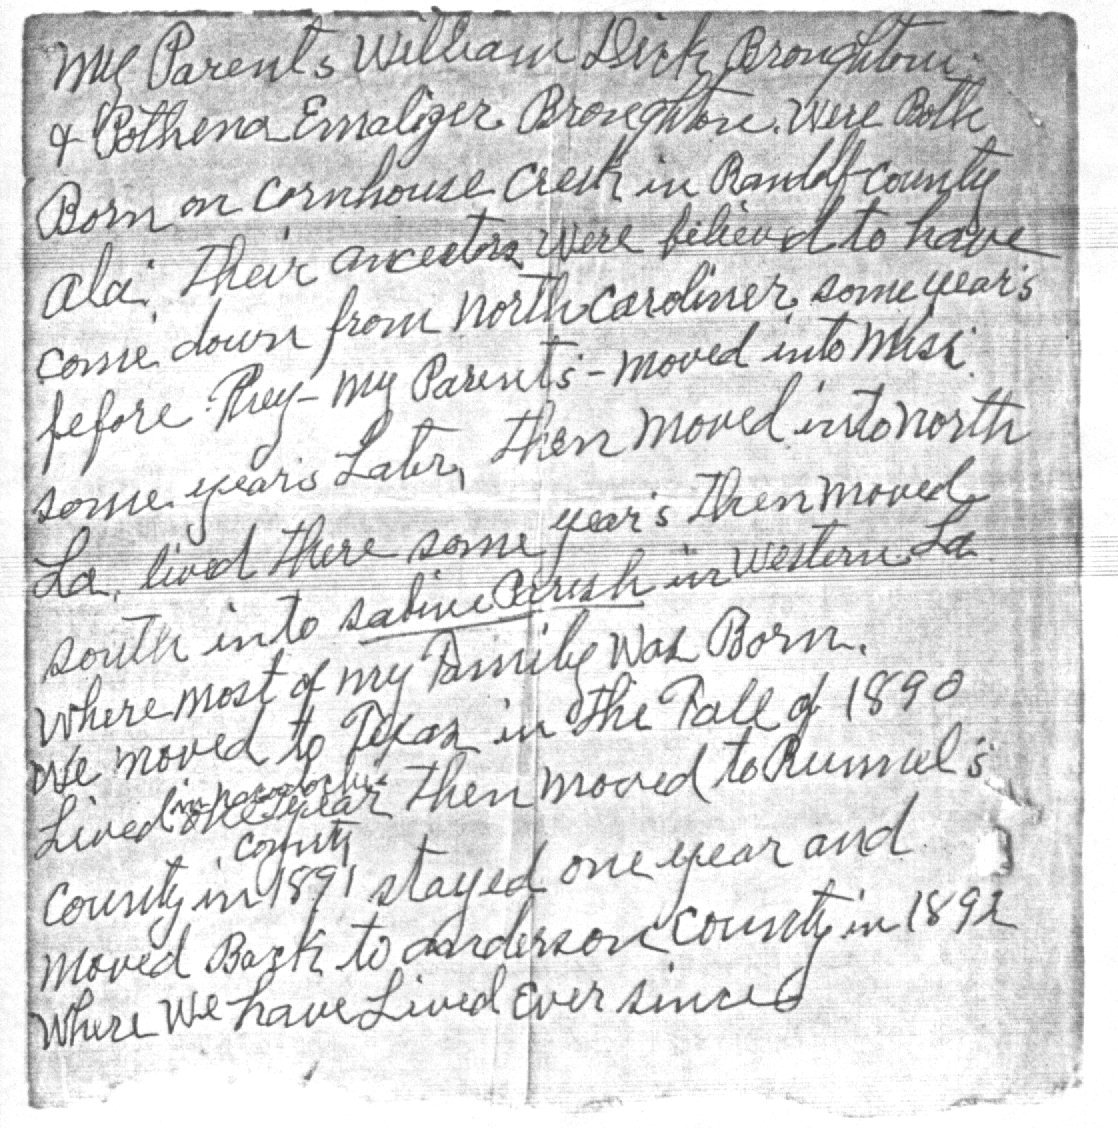 My Parents William Dirk Broughton
& Pothena Emalizer Broughton. Were Both
Born on Cornhouse Creek in Randolf County
Ala. Their ancestors Were believed to have
come down from North Caroliner some year's
before They - My Parent's - moved into Miss.
some year's Later, then moved into North
La. lived there some year's Then moved
south into sabine Parish in Western La
Where most of my Family Was Born.
We moved to Texas in the Fall of 1890
Lived one year Then moved to Runnel's
in
County
County in 1891 stayed one year and
moved Back to anderson County in 1892
Where We have Lived Ever since